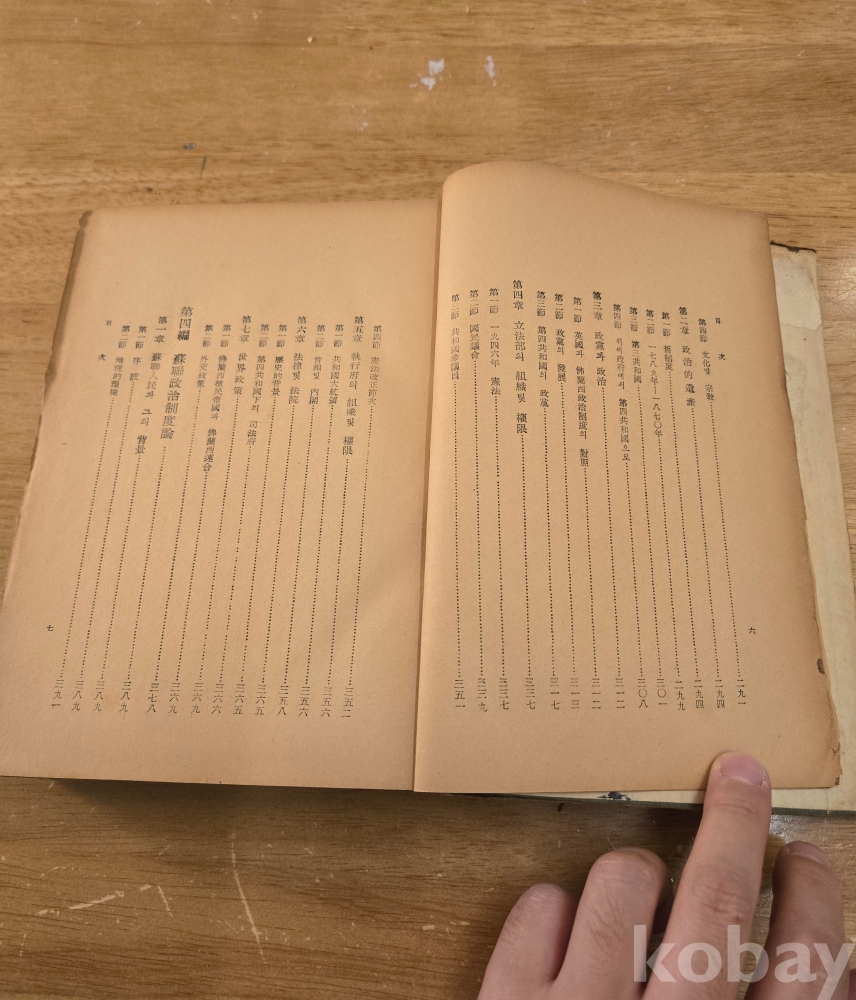 目 次
六
第四節 文化및 宗敎……二九一
第二章 政治的遺産……二九四
第一節 舊制度……二九四
第二節 一七八九年―一八七〇年……二九九
第三節 第三共和國……三〇一
第四節 위씨政府에서 第四共和國으로……三〇八
第三章 政黨과 政治……三一二
第一節 英國과 佛蘭西政治制度의 對照……三一二
第二節 政黨의 發展……三一三
第三節 第四共和國의 政黨……三一七
第四章 立法部의 組織및 權限……三二七
第一節 一九四六年 憲法……三二七
第二節 國民議會……三二九
第三節 共和國參議院……三五一
第四節 憲法改正節次……三五二
第五章 執行府의 組織및 權限……三五六
第一節 共和國大統領……三五六
第二節 首相및 內閣……三五八
第六章 法律및 法院……三六五
第一節 歷史的背景……三六五
第二節 第四共和國下의 司法府……三六六
第七章 世界政策……三六九
第一節 佛蘭西植民帝國과 佛蘭西連合……三六九
第二節 外交政策……三七八
第四編 蘇聯政治制度論……三八九
第一章 蘇聯人民과 그의 背景……三八九
第一節 序說……三八九
第二節 地理的環境……三九一
目 次
七
kobay